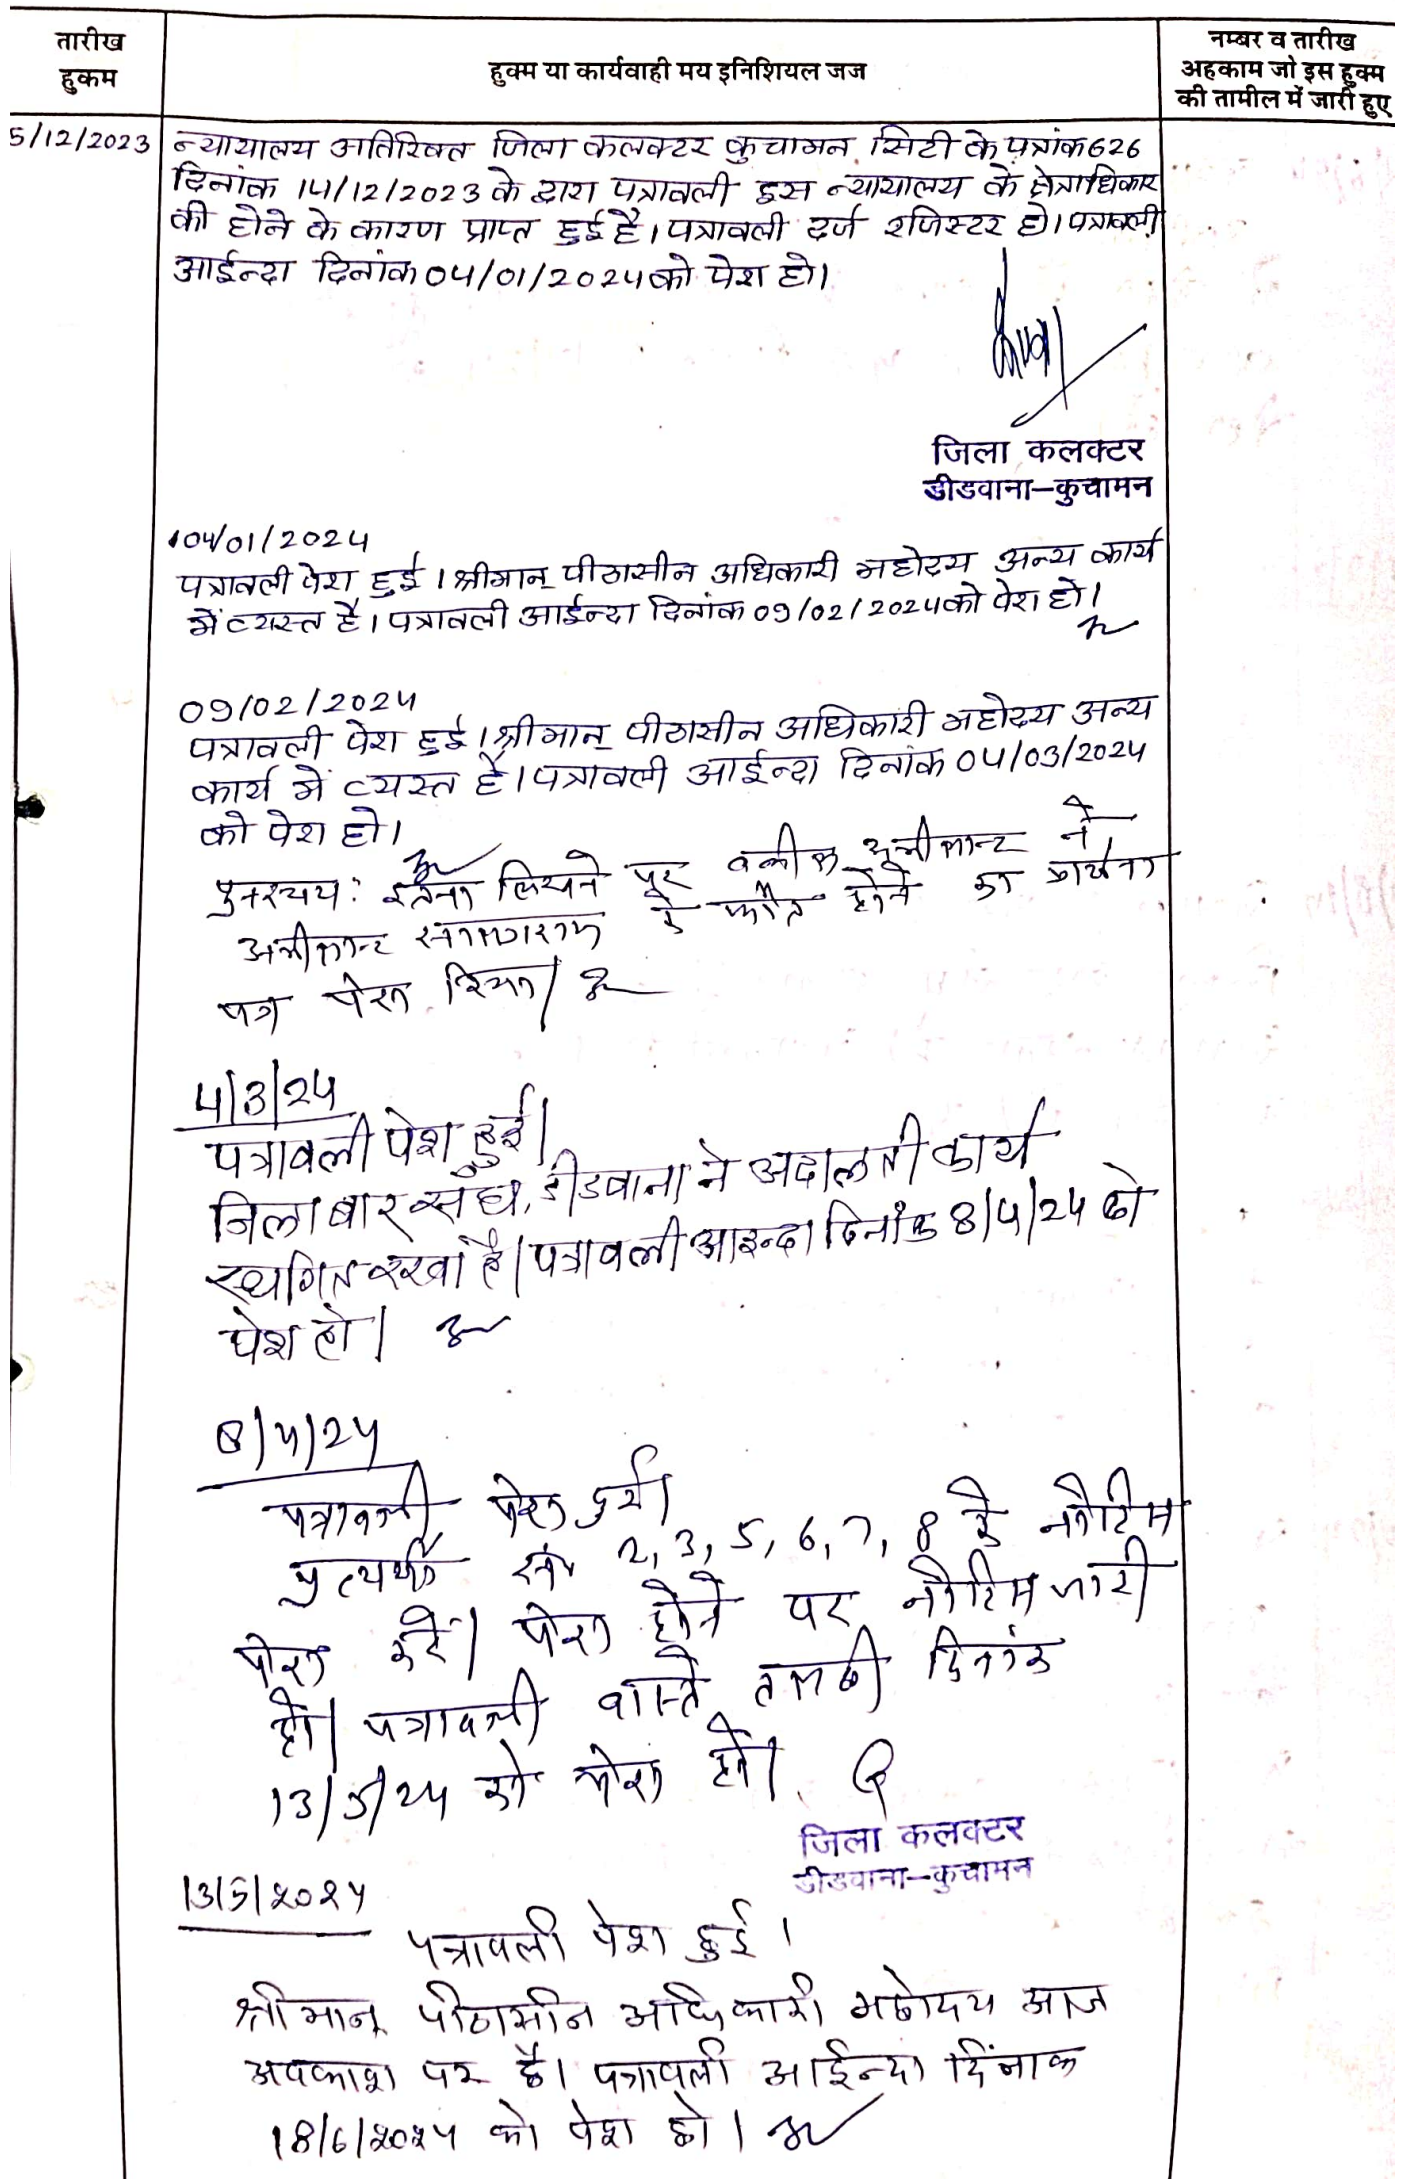 तारीख
हुकम
हुक्म या कार्यवाही मय इनिशियल जज
नम्बर व तारीख
अहकाम जो इस हुक्म
की तामील में जारी हुए
5/12/2023 न्यायालय अतिरिक्त जिला कलक्टर कुचामन सिटी के पत्रांक 626
दिनांक 14/12/2023 के द्वारा पत्रावली इस न्यायालय के क्षेत्राधिकार
की होने के कारण प्राप्त हुई है। पत्रावली दर्ज रजिस्टर हो। पत्रावली
आईन्दा दिनांक 04/01/2024 को पेश हो।
जिला कलक्टर
डीडवाना-कुचामन
04/01/2024
पत्रावली पेश हुई । श्रीमान् पीठासीन अधिकारी महोदय अन्य कार्य
में व्यस्त है। पत्रावली आईन्दा दिनांक 09/02/2024 को पेश हो।
09/02/2024
पत्रावली पेश हुई । श्रीमान् पीठासीन अधिकारी महोदय अन्य
कार्य में व्यस्त है। पत्रावली आईन्दा दिनांक 04/03/2024
को पेश हो।
पुनश्चय: इतना लिखने पर वकील अपीलान्ट ने
अपीलान्ट के फौत होने का प्रार्थना
पत्र पेश किया।
4/3/24
पत्रावली पेश हुई।
जिला बार संघ, डीडवाना ने अदालती कार्य
स्थगित रखा है। पत्रावली आइन्दा दिनांक 8/4/24 को
पेश हो।
8/4/24
पत्रावली पेश हुयी।
प्रत्यर्थी सं 2, 3, 5, 6, 7, 8 के नोटिस
पेश करें। पेश होने पर नोटिस जारी
हो। पत्रावली वास्ते तलबी दिनांक
13/5/24 को पेश हो।
जिला कलक्टर
डीडवाना-कुचामन
13/5/2024
पत्रावली पेश हुई ।
श्रीमान् पीठासीन अधिकारी महोदय आज
अवकाश पर है। पत्रावली आईन्दा दिंनाक
18/6/2024 को पेश हो ।